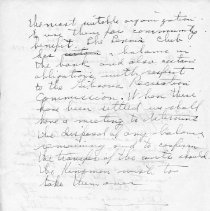 the most suitable organization
to use them for community
benefit. The Lions Club
has a balance in
the bank and also certain
obligations with respect
to the Recreation
Commission. When these
have been settled we shall
have a meeting to determine
the disposal of any balance
remaining and to confirm
the transfer of the assets should
the Kinsmen wish to
take them over.